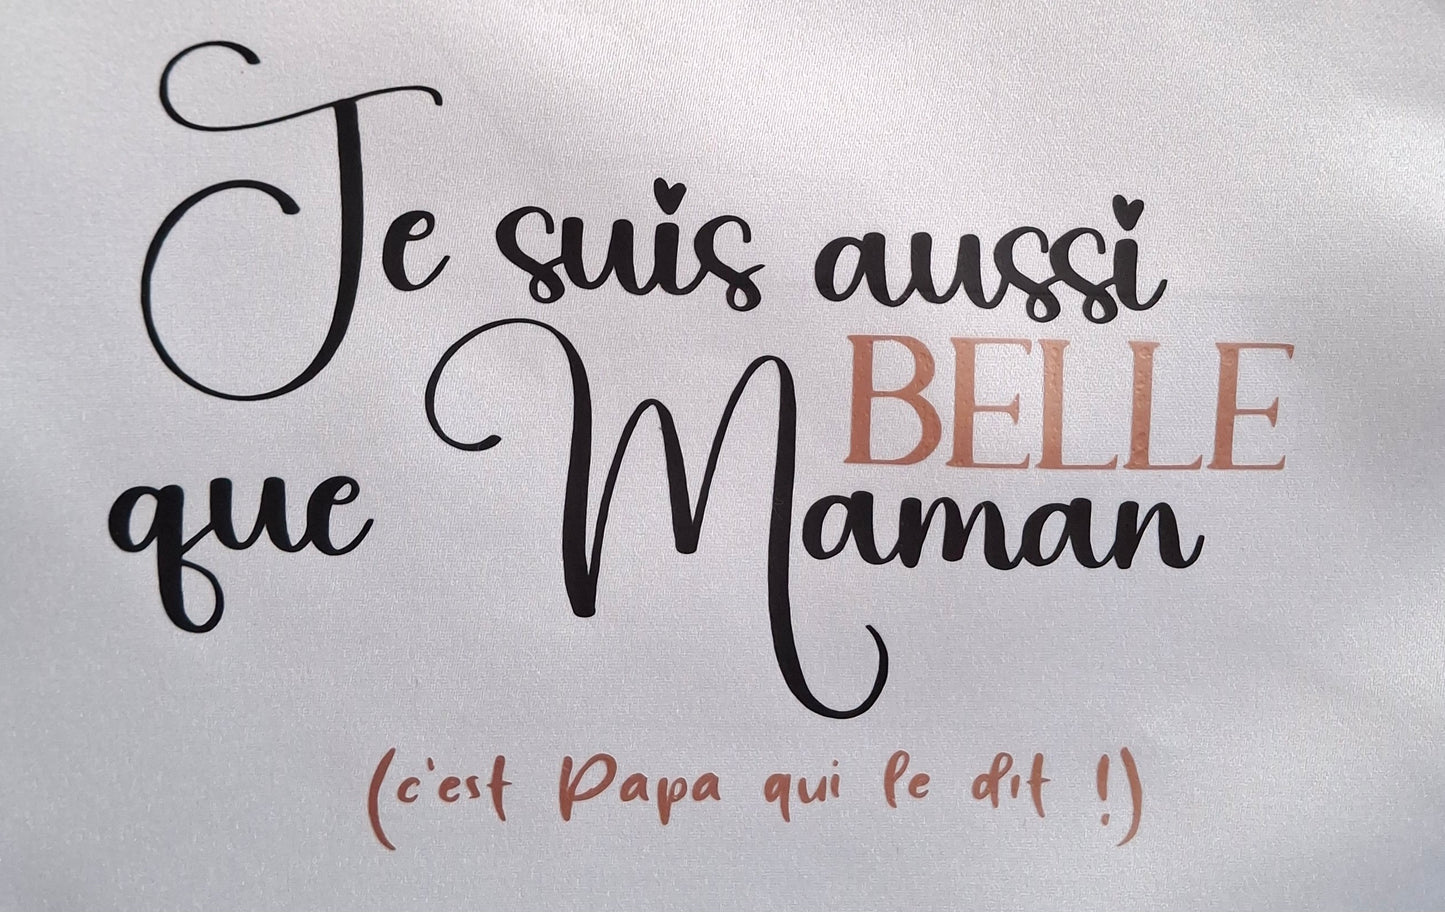 Je suis aussi
BELLE
que Maman
(c'est Papa qui le dit !)